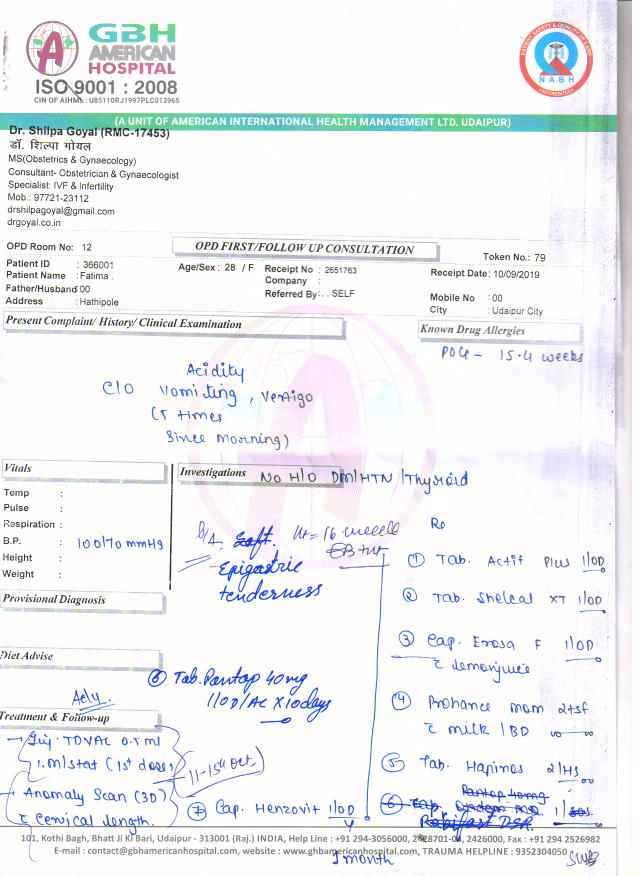 GBH
AMERICAN
HOSPITAL
ISO 9001 : 2008
CIN OF AIHMA : U85110RJ1997PLC013965
PATIENT SAFETY & QUALITY OF CARE
NABH
ACCREDITED
(A UNIT OF AMERICAN INTERNATIONAL HEALTH MANAGEMENT LTD. UDAIPUR)
Dr. Shilpa Goyal (RMC-17453)
डॉ. शिल्पा गोयल
MS(Obstetrics & Gynaecology)
Consultant- Obstetrician & Gynaecologist
Specialist: IVF & Infertility
Mob.: 97721-23112
drshilpagoyal@gmail.com
drgoyal.co.in
OPD Room No: 12
OPD FIRST/FOLLOW UP CONSULTATION
Token No.: 79
Patient ID : 366001
Age/Sex : 28 / F
Receipt No : 2651763
Receipt Date: 10/09/2019
Patient Name : Fatima .
Company :
Father/Husband: 00
Referred By: . . SELF
Mobile No : 00
Address : Hathipole
City : Udaipur City
Present Complaint/ History/ Clinical Examination
Known Drug Allergies
POG - 15.4 weeks
Acidity
C/O Vomiting, Vertigo
(5 times
Since morning)
Vitals
Investigations
No H/O DM/HTN/Thyroid
Temp :
Pulse :
Respiration :
B.P. : 100/70 mmHg
Height :
Weight :
P/A. Soft. Ut = 16 week
Epigastric
tenderness
Rx
① Tab. Actif Plus 1/OD
② Tab. Shelcal XT 1/OD
③ Cap. Erosa F 1/OD
c lemonjuice
④ Prohance mom 2+sf
c milk / BD
⑤ Tab. Hapinos 2/HS
⑥ Tab. Pantop 40mg
Rabifast DSR.
Provisional Diagnosis
Diet Advise
⑥ Tab. Pantop 40mg
1/OD/AC x 10 days
Adv.
Treatment & Follow-up
→ Inj. TDVAC 0.5 ml
I.M/Stat (1st dose)
11-15th Oct.
→ Anomaly Scan (3D)
c cervical length.
⑦ Cap. Henzovit 1/OD
101, Kothi Bagh, Bhatt Ji Ki Bari, Udaipur - 313001 (Raj.) INDIA, Help Line : +91 294-3056000, 2428701-04, 2426000, Fax : +91 294 2526982
E-mail : contact@gbhamericanhospital.com, website : www.gbhamericanhospital.com, TRAUMA HELPLINE : 9352304050
1 month